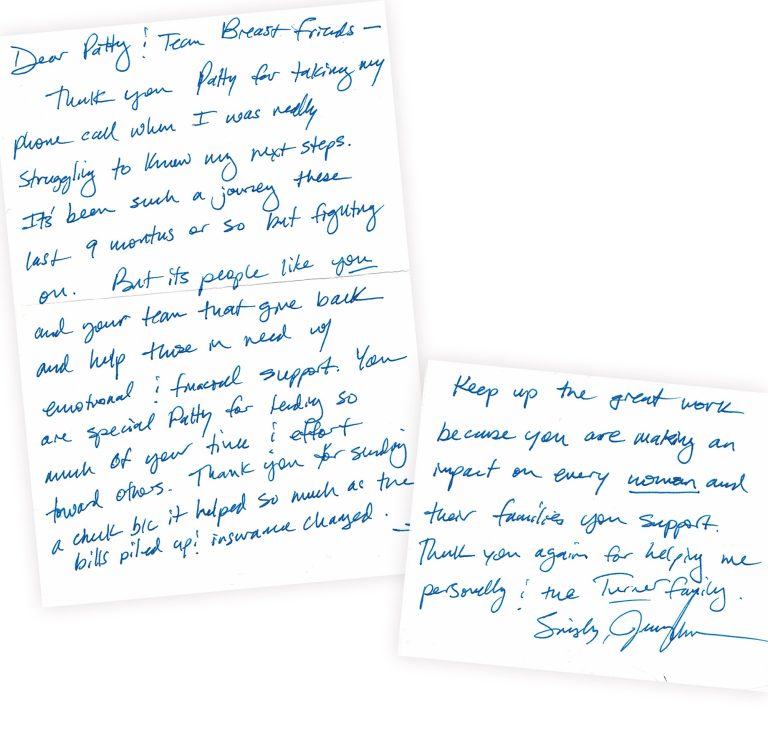 Dear Patty & Team Breast friends —
Thank you Patty for taking my
phone call when I was really
struggling to know my next steps.
It's been such a journey these
last 9 months or so but fighting
on. But its people like you
and your team that give back
and help those in need w/
emotional & financial support. You
are special Patty for lending so
much of your time & effort
toward others. Thank you for sending
a check b/c it helped so much as the
bills piled up & insurance changed. —
Keep up the great work
because you are making an
impact on every woman and
their families you support.
Thank you again for helping me
personally & the Turner family.